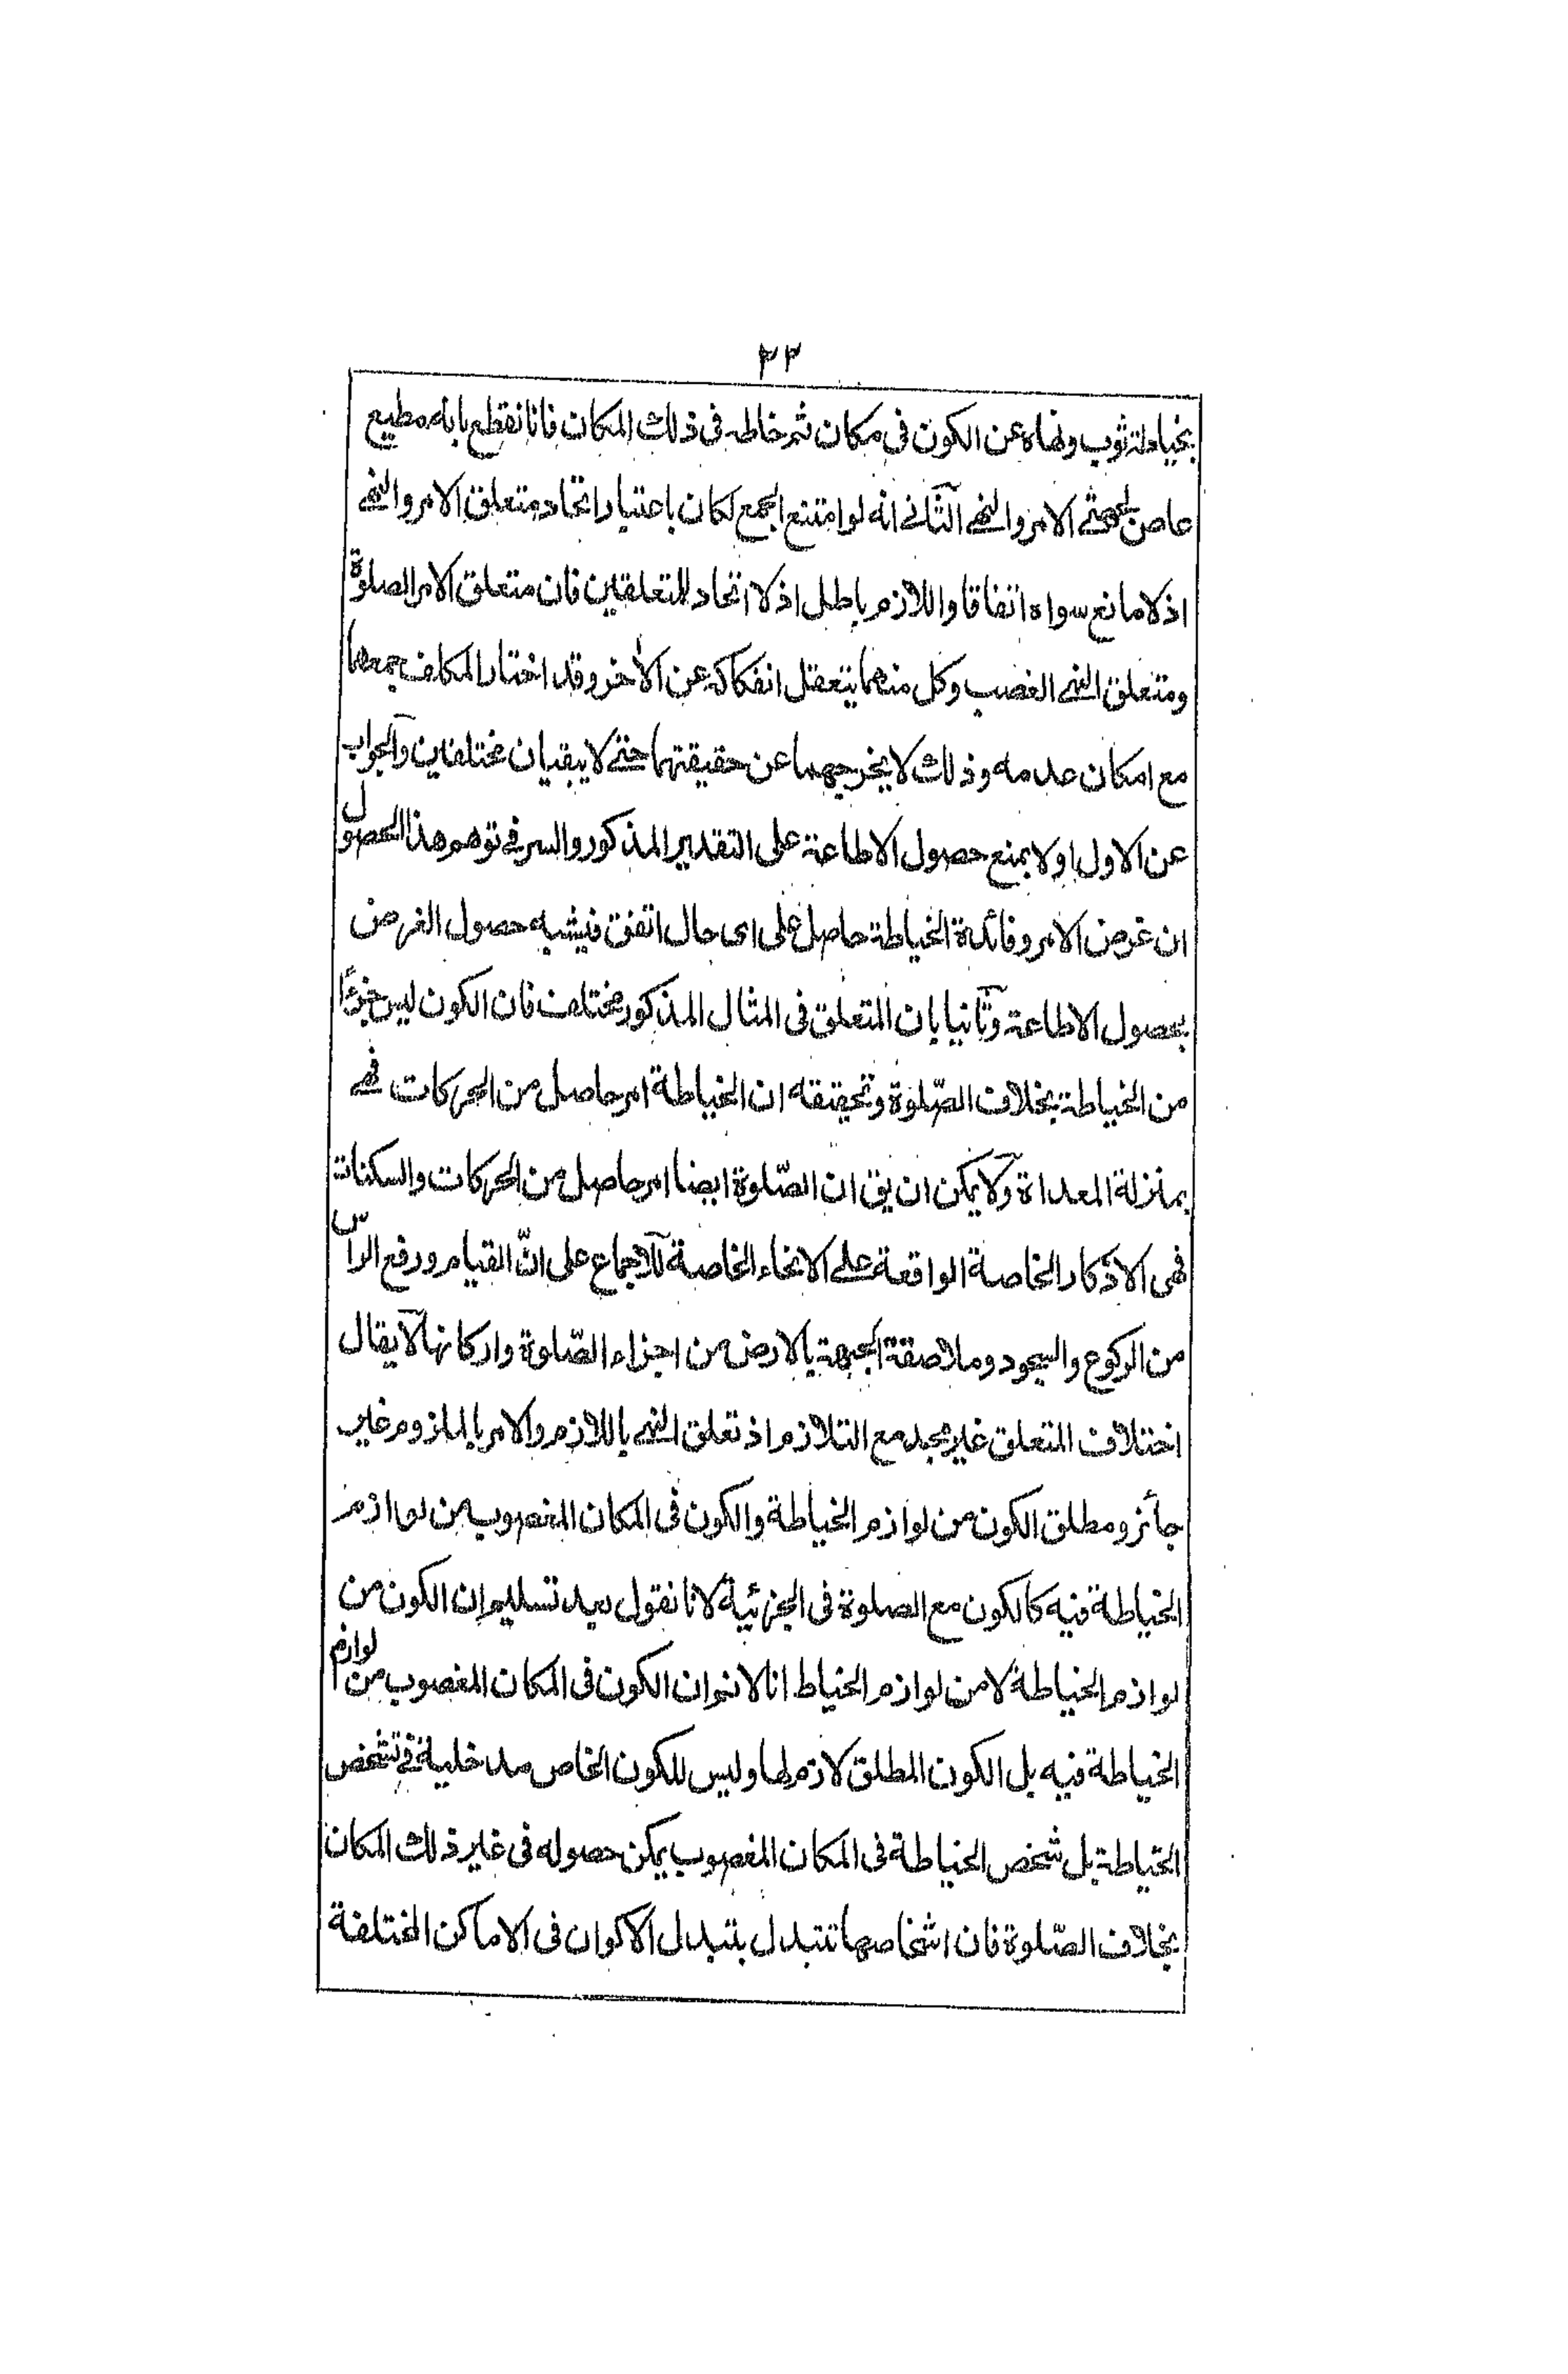 ٢٣
بخياطة ثوب ونهاه عن الكون فى مكان ثم خاطه فى ذلك المكان فانا نقطع بانه مطيع
عاص لجهتى الامر والنهى الثانى انه لو امتنع الجمع لكان باعتبار اتحاد متعلق الامر والنهى
اذ لا مانع سواه اتفاقا واللازم باطل اذ لا اتحاد للمتعلقين فان متعلق الامر الصلوة
ومتعلق النهى الغصب وكل منهما يتعقل انفكاكه عن الأخر وقد اختار المكلف جمعهما
مع امكان عدمه وذلك لا يخرجهما عن حقيقتهما حتى لا يبقيان مختلفين والجواب
عن الاول اولا بمنع حصول الاطاعة على التقدير المذكور والسر فى توهم هذا الحصول
ان غرض الامر وفائدة الخياطة حاصل على اى حال اتفق فيشبه حصول الغرض
بحصول الاطاعة وثانيا بان المتعلق فى المثال المذكور مختلف فان الكون ليس جزءًا
من الخياطة بخلاف الصّلوة وتحقيقه ان الخياطة امر حاصل من الحركات فهى
بمنزلة المعداة ولا يمكن ان يق ان الصّلوة ايضا امر حاصل من الحركات والسكنات
فهى الاذكار الخاصة الواقعة على الانحاء الخاصة للاجماع على انّ القيام ورفع الراس
من الركوع والسجود وملاصقة الجبهة بالارض من اجزاء الصّلوة واركانها لا يقال
اختلاف المتعلق غير مجد مع التلازم اذ تعلق النهى باللازم والامر بالملزوم غير
جائز ومطلق الكون من لوازم الخياطة والكون فى المكان المغصوب من لوازم
الخياطة فيه كالكون مع الصلوة فى الجزئية لانا نقول بعد تسليم ان الكون من
لوازم الخياطة لا من لوازم الخياط انا لا نم ان الكون فى المكان المغصوب من لوازم
الخياطة فيه بل الكون المطلق لازم لها وليس للكون الخاص مدخلية فى تشخص
الخياطة بل شخص الخياطة فى المكان المغصوب يمكن حصوله فى غير ذلك المكان
بخلاف الصّلوة فان اشخاصها تتبدل بتبدل الاكوان فى الاماكن المختلفة